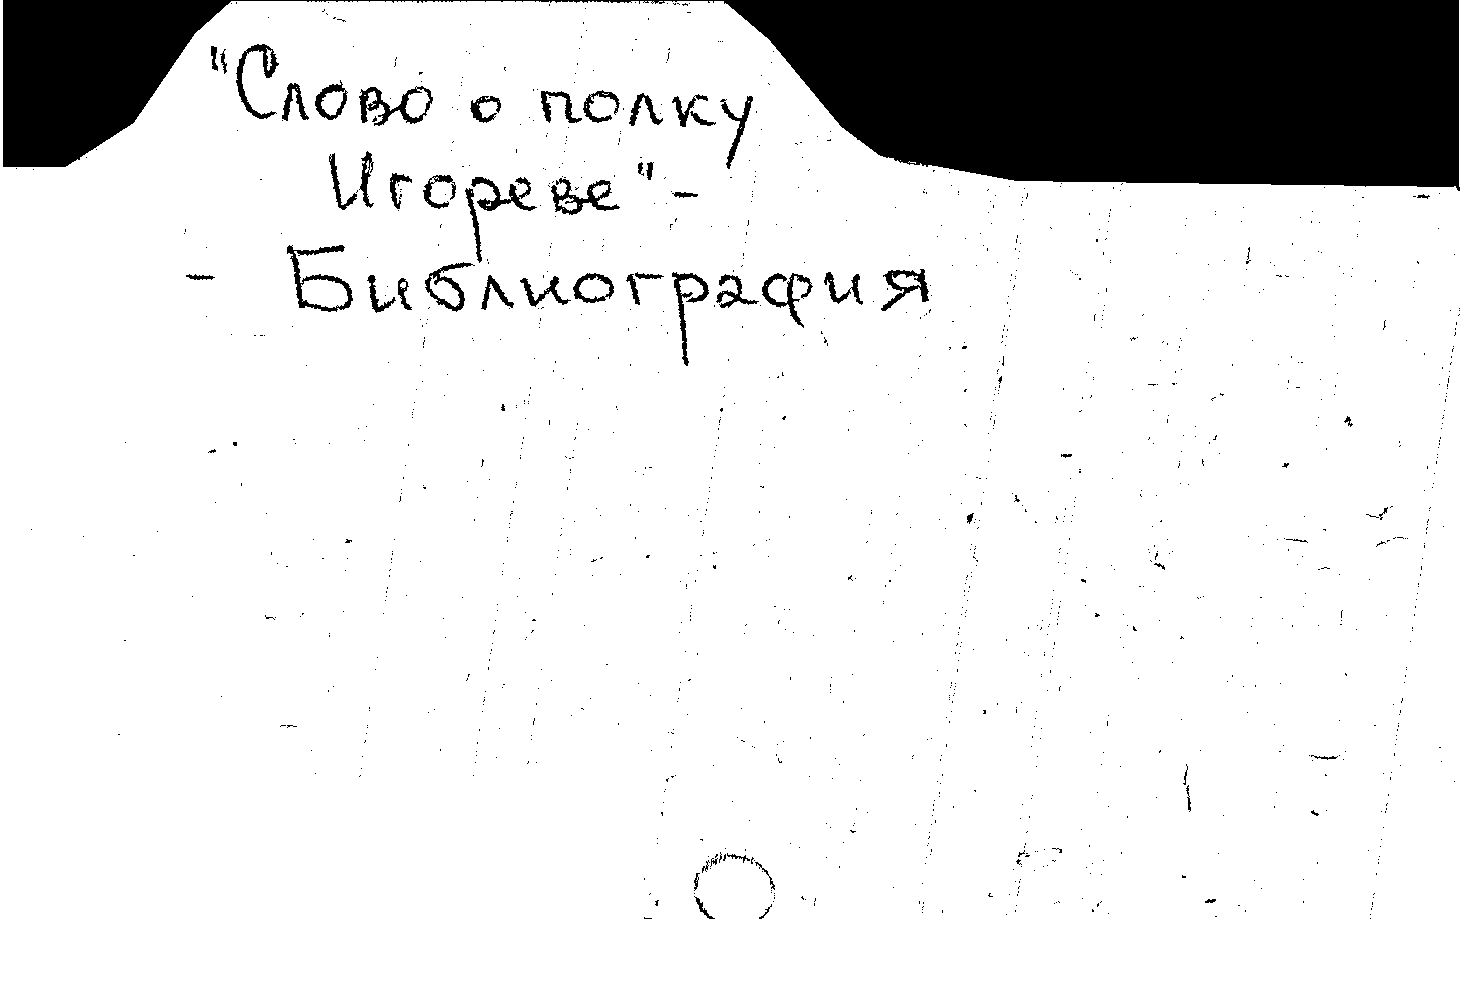 "Слово о полку
Игореве" -
- Библиография